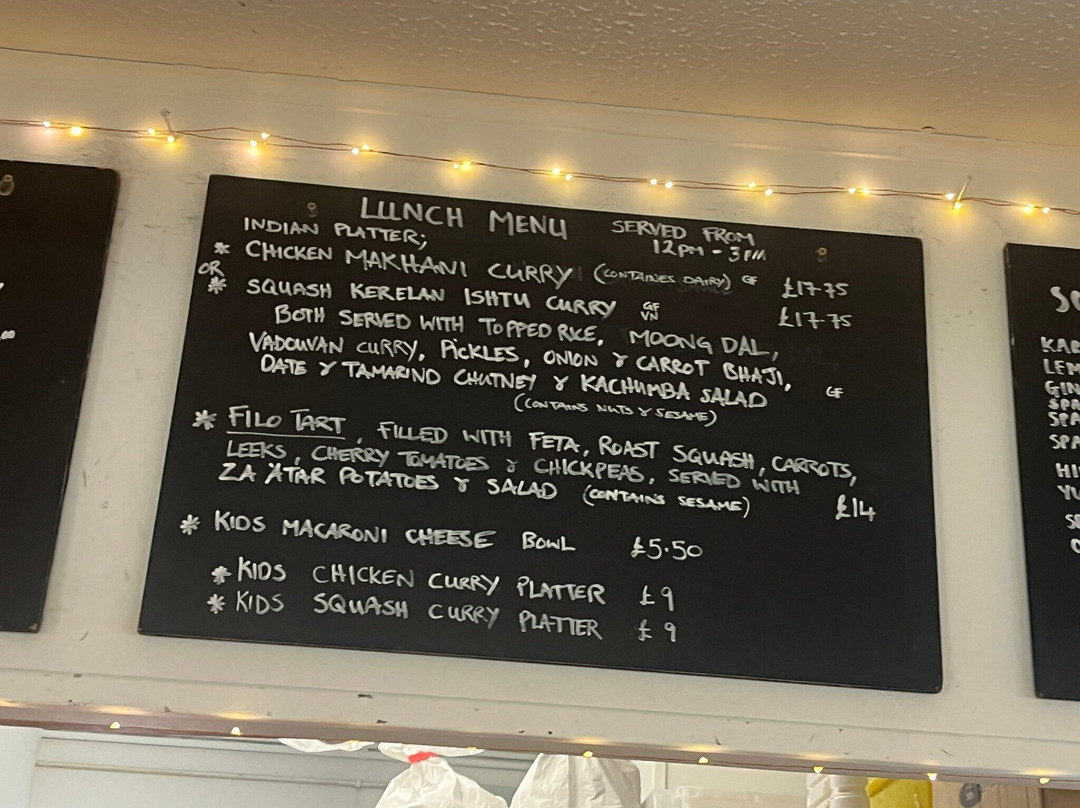 LUNCH MENU SERVED FROM
12PM - 3PM
INDIAN PLATTER;
* CHICKEN MAKHANI CURRY (CONTAINES DAIRY) GF £17.75
OR
* SQUASH KERELAN ISHTU CURRY GF VN £17.75
BOTH SERVED WITH TOPPED RICE, MOONG DAL,
VADOUVAN CURRY, PICKLES, ONION & CARROT BHAJI,
DATE & TAMARIND CHUTNEY & KACHUMBA SALAD GF
(CONTAINS NUTS & SESAME)
* FILO TART, FILLED WITH FETA, ROAST SQUASH, CARROTS,
LEEKS, CHERRY TOMATOES & CHICKPEAS, SERVED WITH
ZA'ATAR POTATOES & SALAD (CONTAINS SESAME) £14
* KIDS MACARONI CHEESE BOWL £5.50
* KIDS CHICKEN CURRY PLATTER £9
* KIDS SQUASH CURRY PLATTER £9
KAR
LEM
GIN
SPA
SPA
SPA
HI
YU